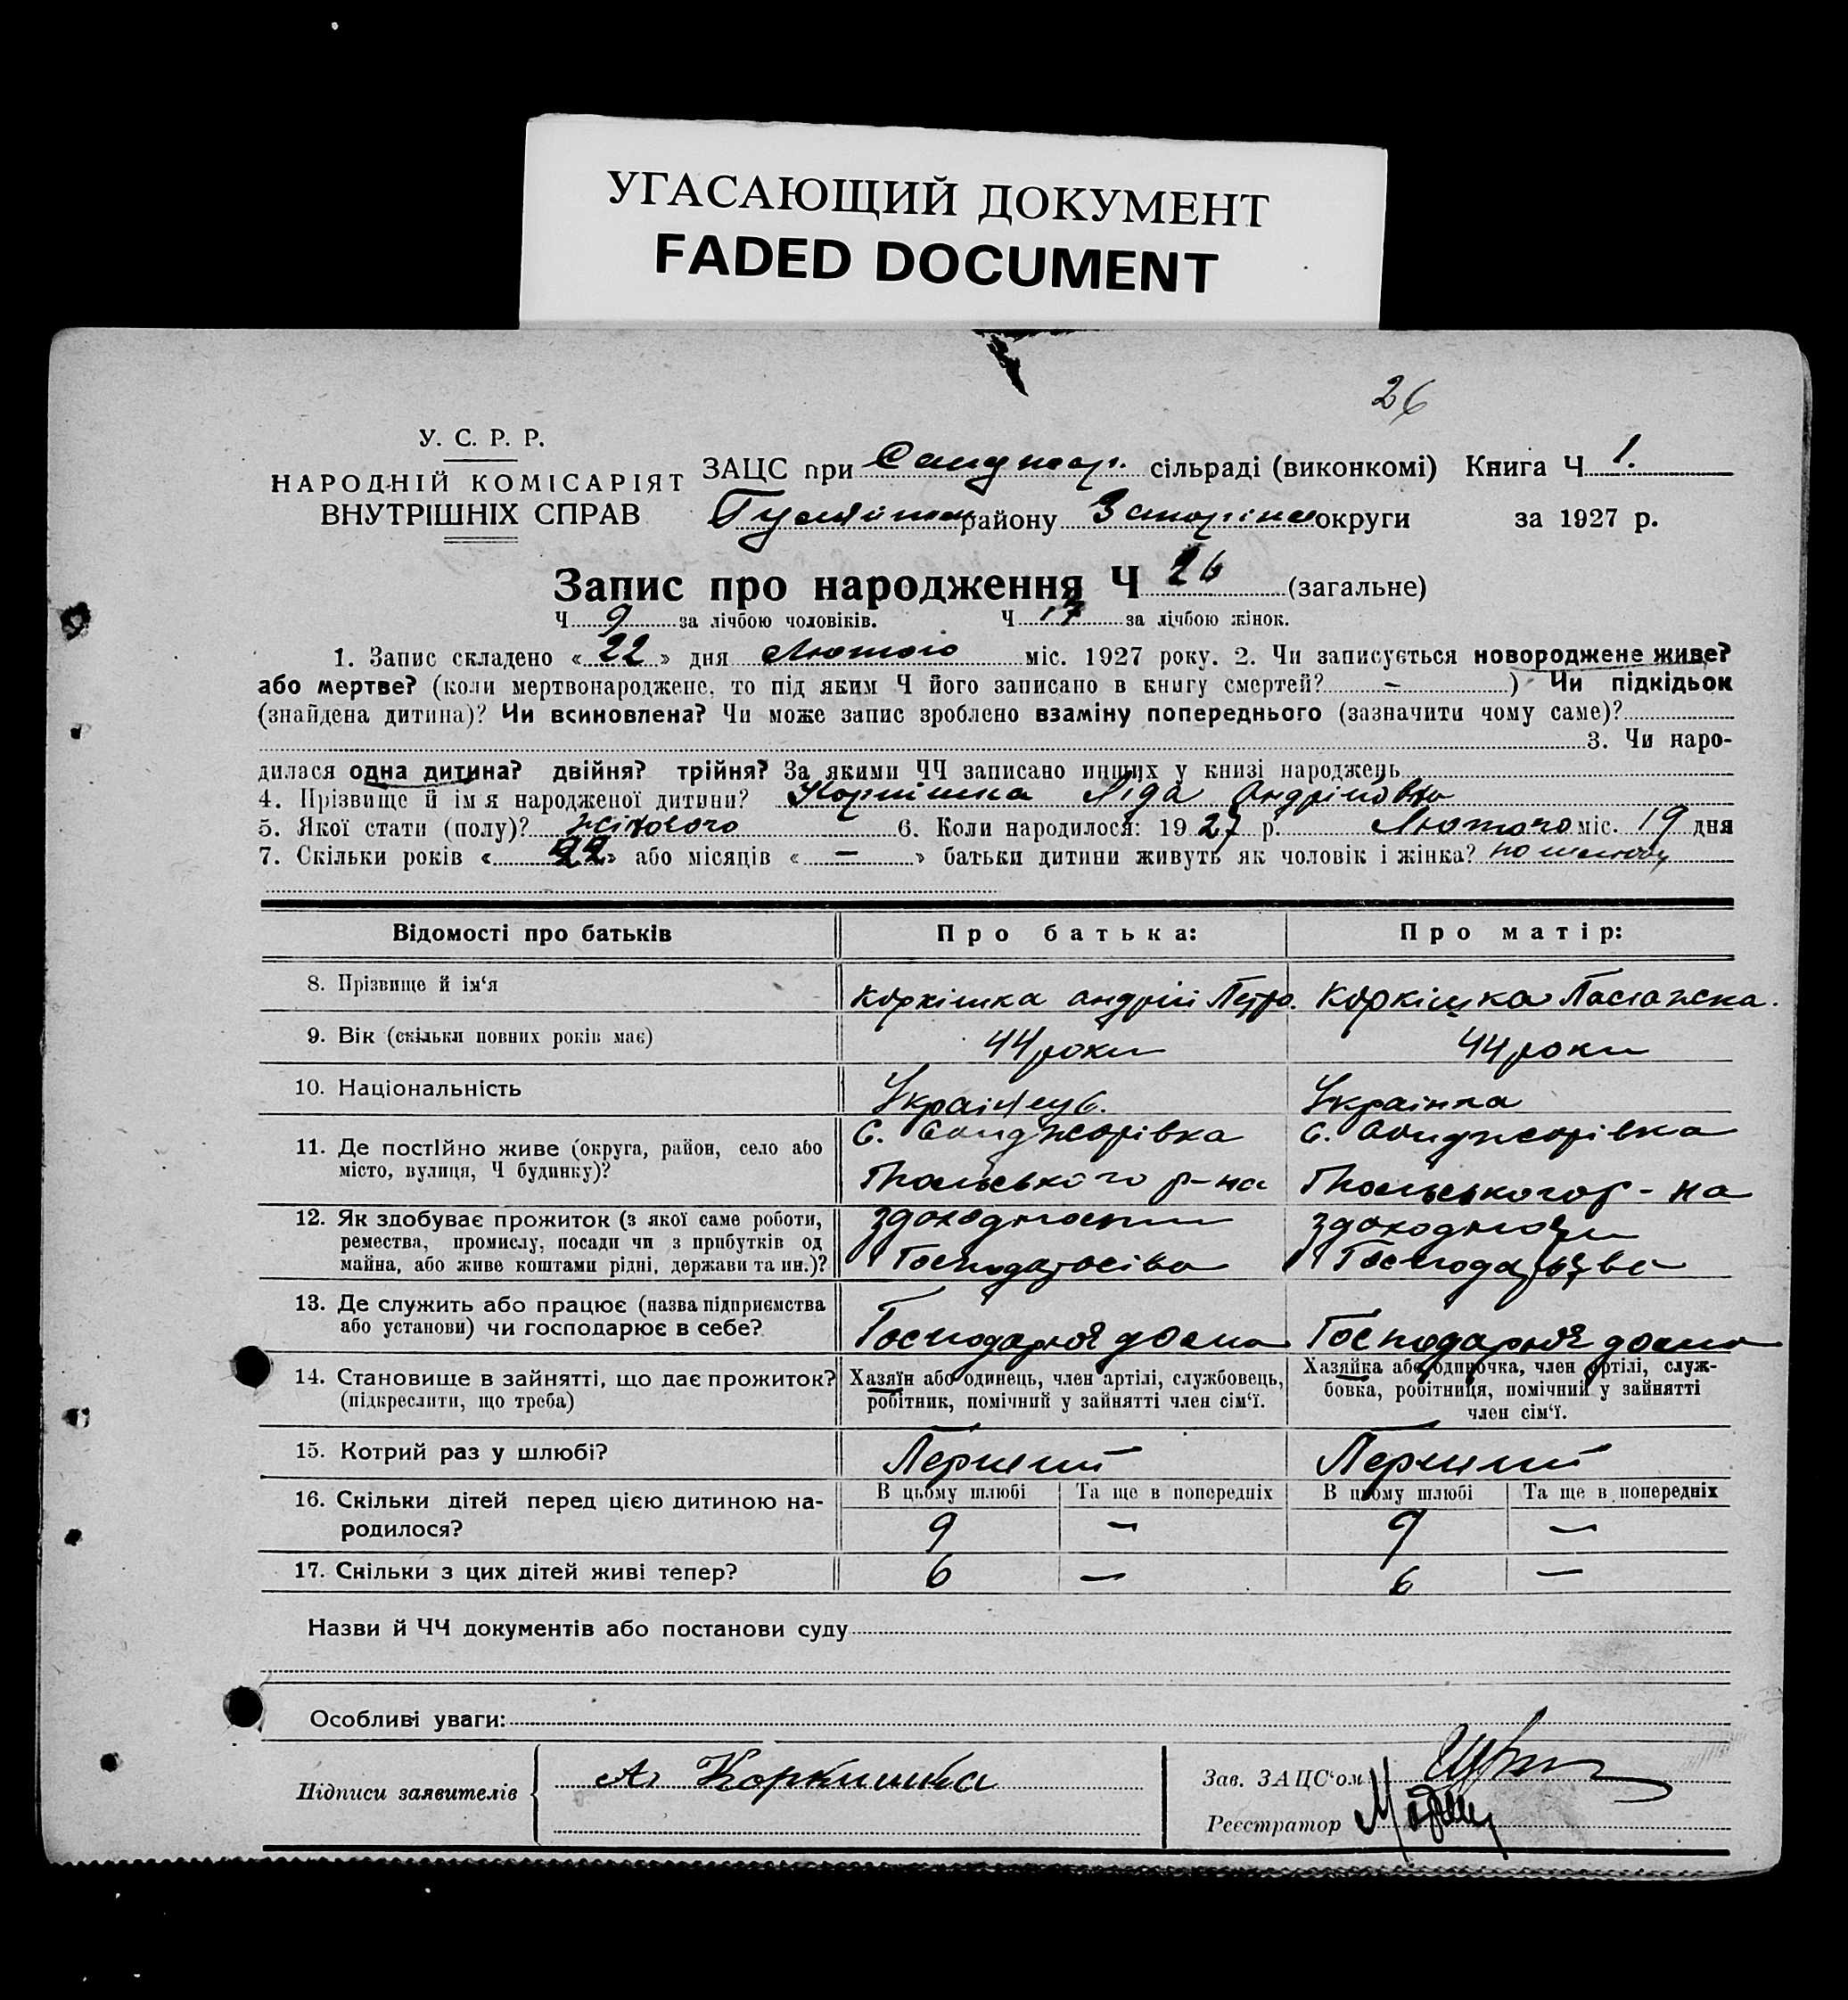 УГАСАЮЩИЙ ДОКУМЕНТ
FADED DOCUMENT
26
У. С. Р. Р.
НАРОДНІЙ КОМІСАРІЯТ
ВНУТРІШНІХ СПРАВ
ЗАЦС при сільраді (виконкомі) Книга Ч 1.
району округи за 1927 р.
Запис про народження Ч 26 (загальне)
Ч 9 за лічбою чоловіків. Ч 17 за лічбою жінок.
1. Запис складено « 22 » дня Лютого міс. 1927 року. 2. Чи записується новороджене живе?
або мертве? (коли мертвонароджене, то під яким Ч його записано в книгу смертей? – ) Чи підкідьок
(знайдена дитина)? Чи всиновлена? Чи може запис зроблено взаміну попереднього (зазначити чому саме)?
3. Чи наро-
дилася одна дитина? двійня? трійня? За якими ЧЧ записано инших у книзі народжень
4. Прізвище й імя народженої дитини? Коркішка Ліда Андріївна
5. Якої стати (полу)? жіночого 6. Коли народилося: 1927 р. Лютого міс. 19 дня
7. Скільки років « 22 » або місяців « – » батьки дитини живуть як чоловік і жінка? по шлюбу
Відомості про батьків Про батька: Про матір:
8. Прізвище й ім'я Коркішка Андрій Петро. Коркішка
9. Вік (скільки повних років має) 44 роки 44 роки
10. Національність Українець. Українка
11. Де постійно живе (округа, район, село або С. Санджарівка С. Санджарівка
місто, вулиця, Ч будинку)? р-на р-на
12. Як здобуває прожиток (з якої саме роботи, з доходности
ремества, промислу, посади чи з прибутків од
майна, або живе коштами рідні, держави та ин.)? Господарства Господарства
13. Де служить або працює (назва підприємства
або установи) чи господарює в себе? Господарює дома Господарює дома
14. Становище в зайнятті, що дає прожиток? Хазяїн або одинець, член артілі, службовець, Хазяйка або одиночка, член артілі, служ-
(підкреслити, що треба) робітник, помічний у зайнятті член сім'ї. бовка, робітниця, помічний у зайнятті
член сім'ї.
15. Котрий раз у шлюбі? Перший Перший
16. Скільки дітей перед цією дитиною на- В цьому шлюбі Та ще в попередніх В цьому шлюбі Та ще в попередніх
родилося? 9 – 9 –
17. Скільки з цих дітей живі тепер? 6 – 6 –
Назви й ЧЧ документів або постанови суду
Особливі уваги:
Підписи заявителів А. Коркишка Зав. ЗАЦС'ом
Реєстратор